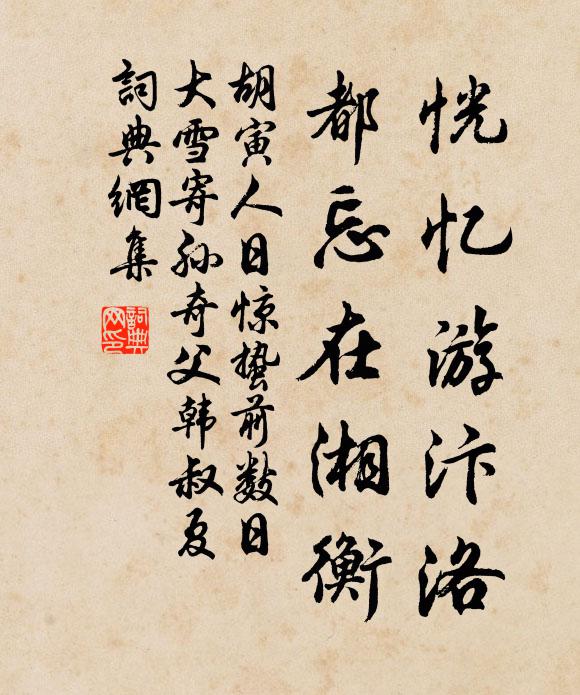 恍忆游汴洛
都忘在湘衡
胡寅人日惊蛰前数日
大雪寄孙奇父韩叔夏
詞典網集
詞典网印